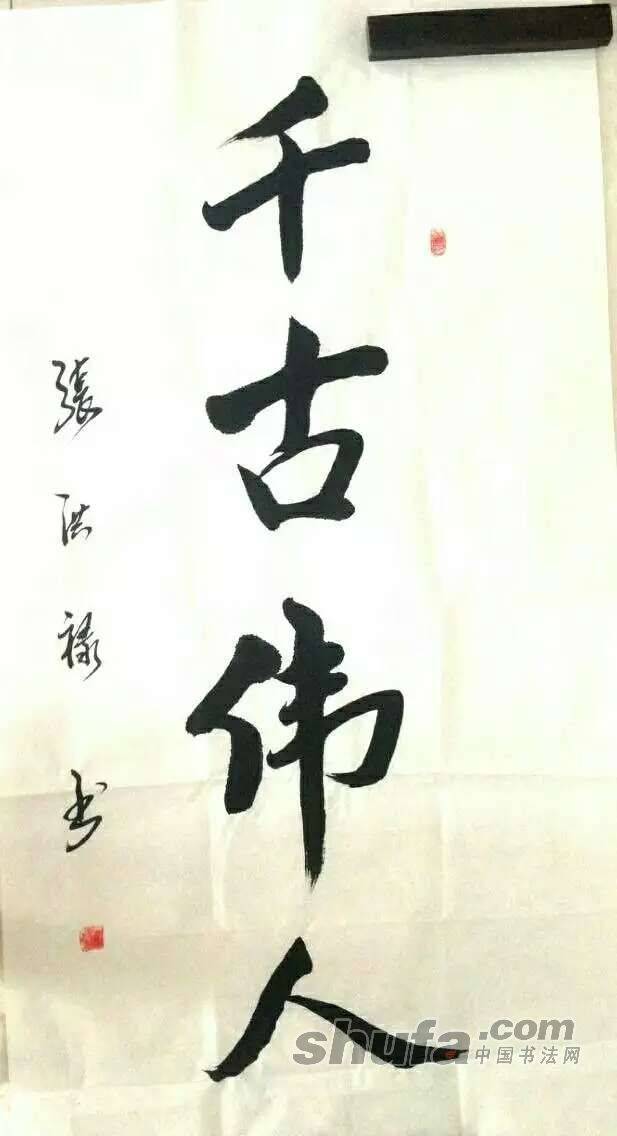 千古伟人
張洪禄书
shufa.com
中国书法网